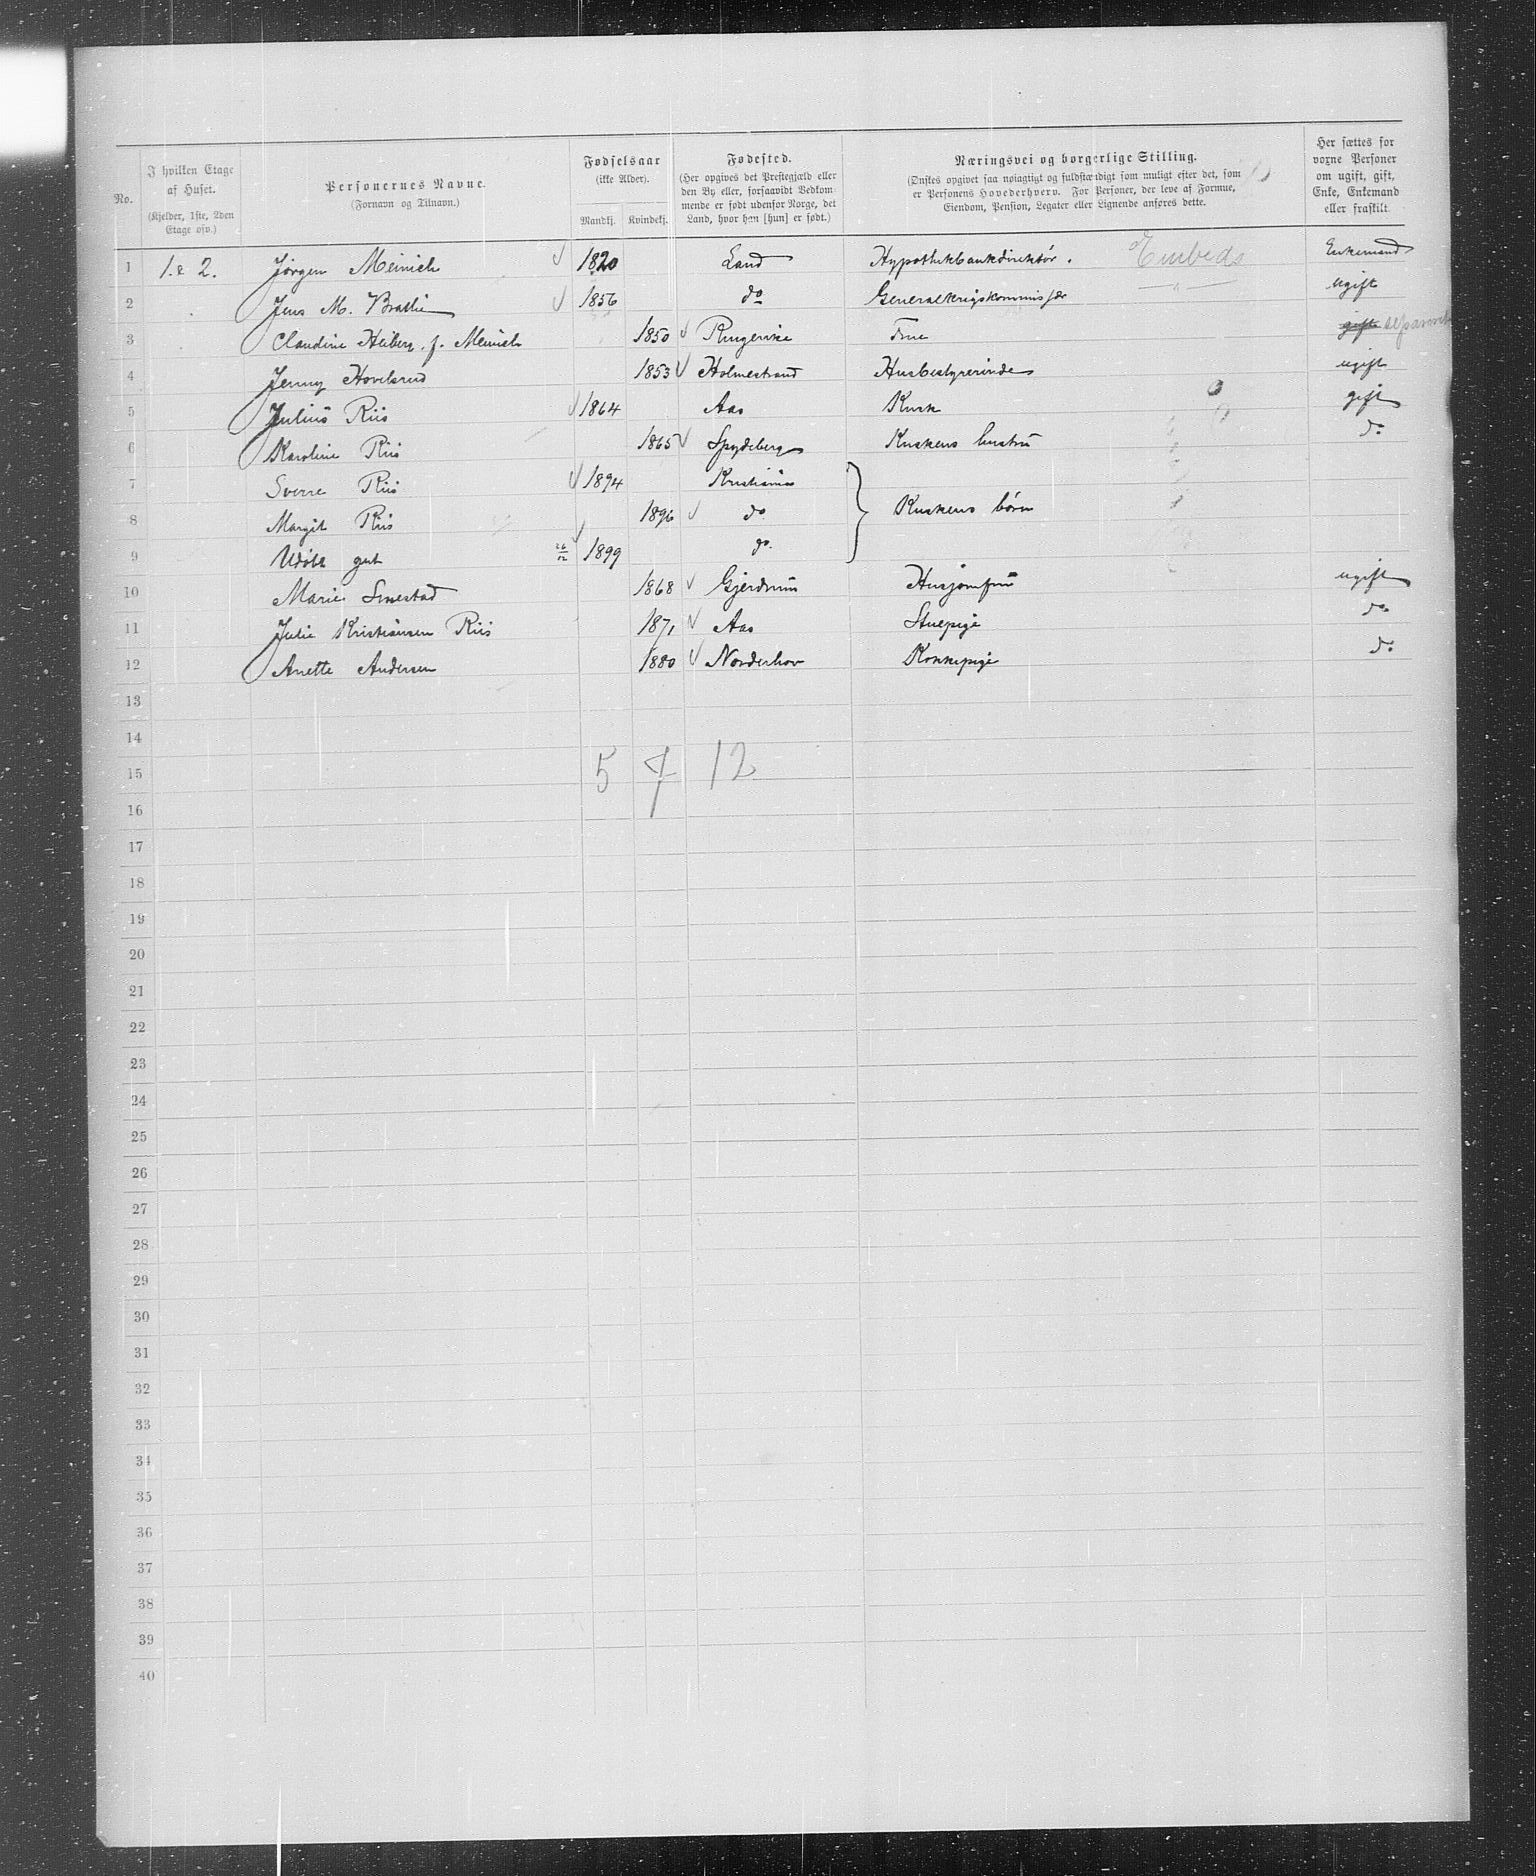 No.
I hvilken Etage af Huset.
(Kjelder, 1ste, 2den Etage osv.)
Personernes Navne.
(Fornavn og Tilnavn.)
Fødselsaar
(ikke Alder).
Mandkj. Kvindekj.
Fødested.
(Her opgives det Prestegjæld eller
den By eller, forsaavidt Vedkom-
mende er født udenfor Norge, det
Land, hvor han [hun] er født.)
Næringsvei og borgerlige Stilling.
(Ønskes opgivet saa nøiagtigt og fuldstændigt som muligt efter det, som
er Personens Hovederhverv. For Personer, der leve af Formue,
Eiendom, Pension, Legater eller Lignende anføres dette.
Her sættes for
voxne Personer
om ugift, gift,
Enke, Enkemand
eller fraskilt.
1 1. & 2. Jörgen Meinich 1820 Land Hypothekbankdirektör. Embeds Enkemand
2 Jens M. Bratlie 1856 do Generalkrigskommissær " ugift
3 Claudine Heiberg f. Meinich 1850 Ringerike Frue gift separeret
4 Jenny Hovelsrud 1853 Holmestrand Husbestyrerinde ugift
5 Julius Riis 1864 Aas Kusk gift
6 Karoline Riis 1865 Spydeberg Kuskens hustru do
7 Sverre Riis 1894 Kristiania
8 Margit Riis 1896 do Kuskens börn
9 Udöbt gut 26/12 1899 do.
10 Marie Smestad 1868 Gjerdrum Husjomfru ugift
11 Julie Kristiansen Riis 1871 Aas Stuepige do
12 Anette Andersen 1880 Norderhov Kokkepige do
13
14
15 5 7 12
16
17
18
19
20
21
22
23
24
25
26
27
28
29
30
31
32
33
34
35
36
37
38
39
40